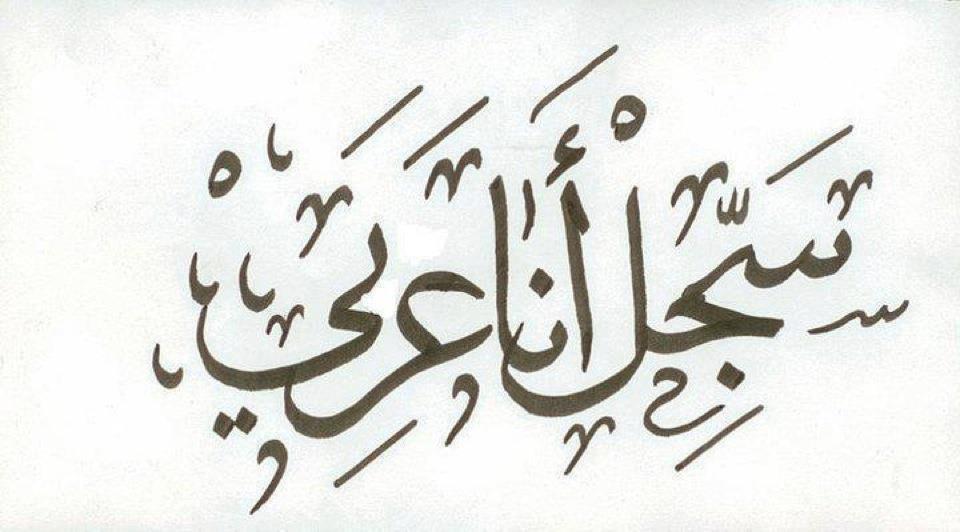 سَجِّلْ أَنَا عَرَبِيْ